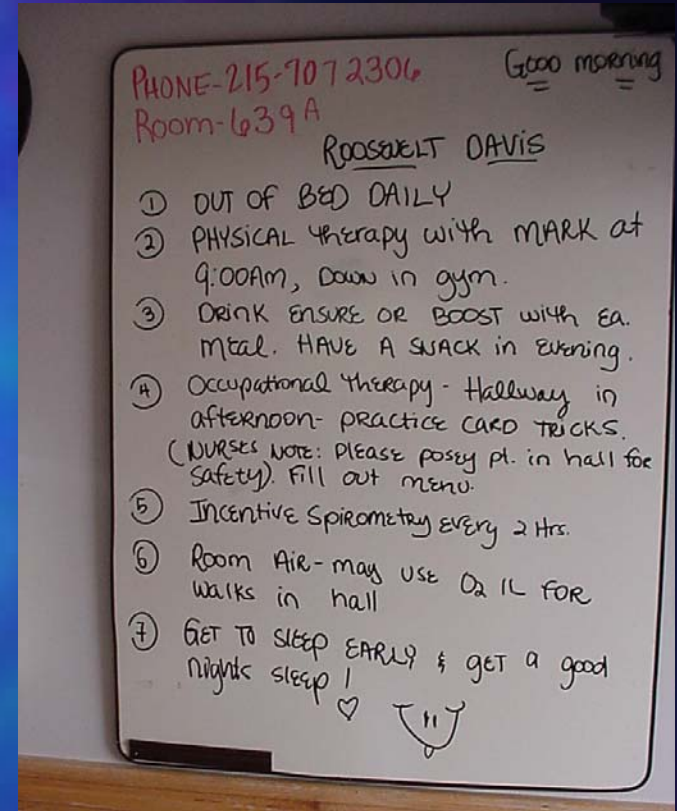 PHONE-215-707 2306
GOOD MORNING
Room-639A
ROOSEVELT DAVIS
① OUT OF BED DAILY
② PHYSICAL therapy with MARK at
9:00AM, DOWN in gym.
③ DRINK ENSURE OR BOOST with Ea.
Meal. HAVE A SNACK in EVENING.
④ Occupational therapy - Hallway in
afternoon- PRACTICE CARD TRICKS.
(NURSES NOTE: Please posey pt. in hall for
safety). Fill out menu.
⑤ Incentive Spirometry Every 2 Hrs.
⑥ Room Air- may use O2 1L FOR
walks in hall
⑦ GET TO SLEEP EARLY & get a good
nights sleep!